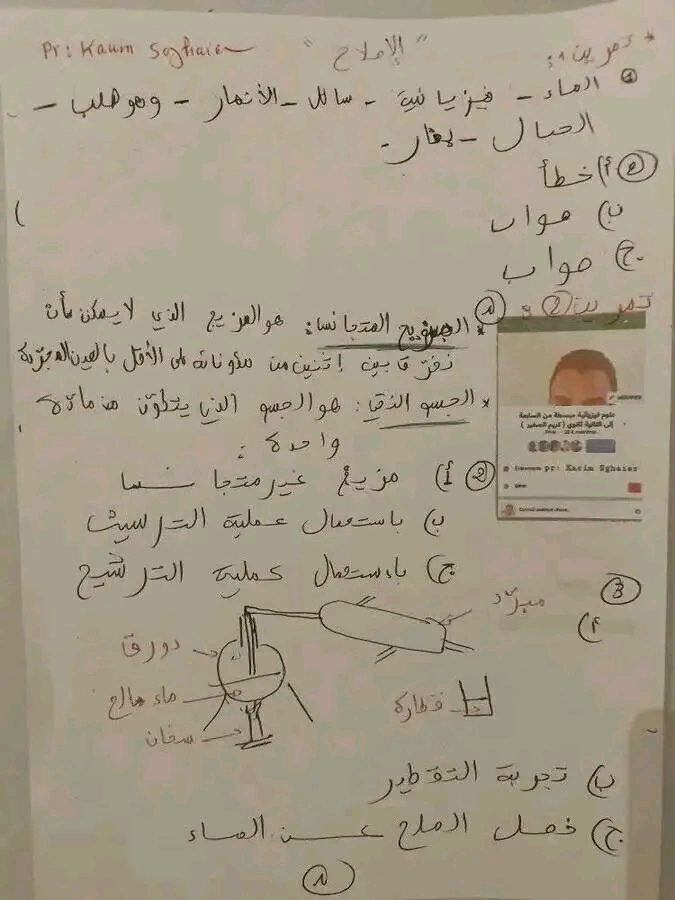 * تمرين 1:
"الإصلاح"
Pr: Karim Sghaier
① الماء - فيزيائية - سائل - الأنهار - وهو صلب -
الجبال - بخار -
② أ) خطأ
ب) صواب
ج) صواب
تمرين 2:
① * المزيج المتجانس: هو المزيج الذي لا يمكن أن
نفرّق بين إثنين من مكوناته على الأقل بالعين المجرّدة
* الجسم النقي: هو الجسم الذي يتكوّن من مادة
واحدة:
② أ) مزيج غير متجانس
ب) باستعمال عملية الترسيب
ج) باستعمال عملية الترشيح
علوم فيزيائية مبسطة من السابعة
إلى الثانية ثانوي ( كريم الصغير )
pr: Karim Sghaier
③
أ)
مبرّد
دورق
ماء مالح
سخان
قطارة
ب) تجربة التقطير
ج) فصل الملح عن الماء
①